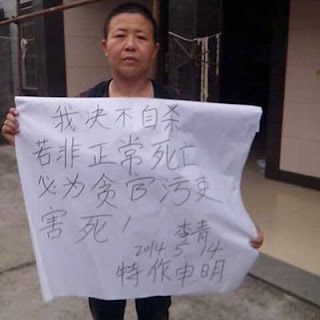 我决不自杀
若非正常死亡
必为贪官污吏
害死！
李青
2014 5 14
特作申明